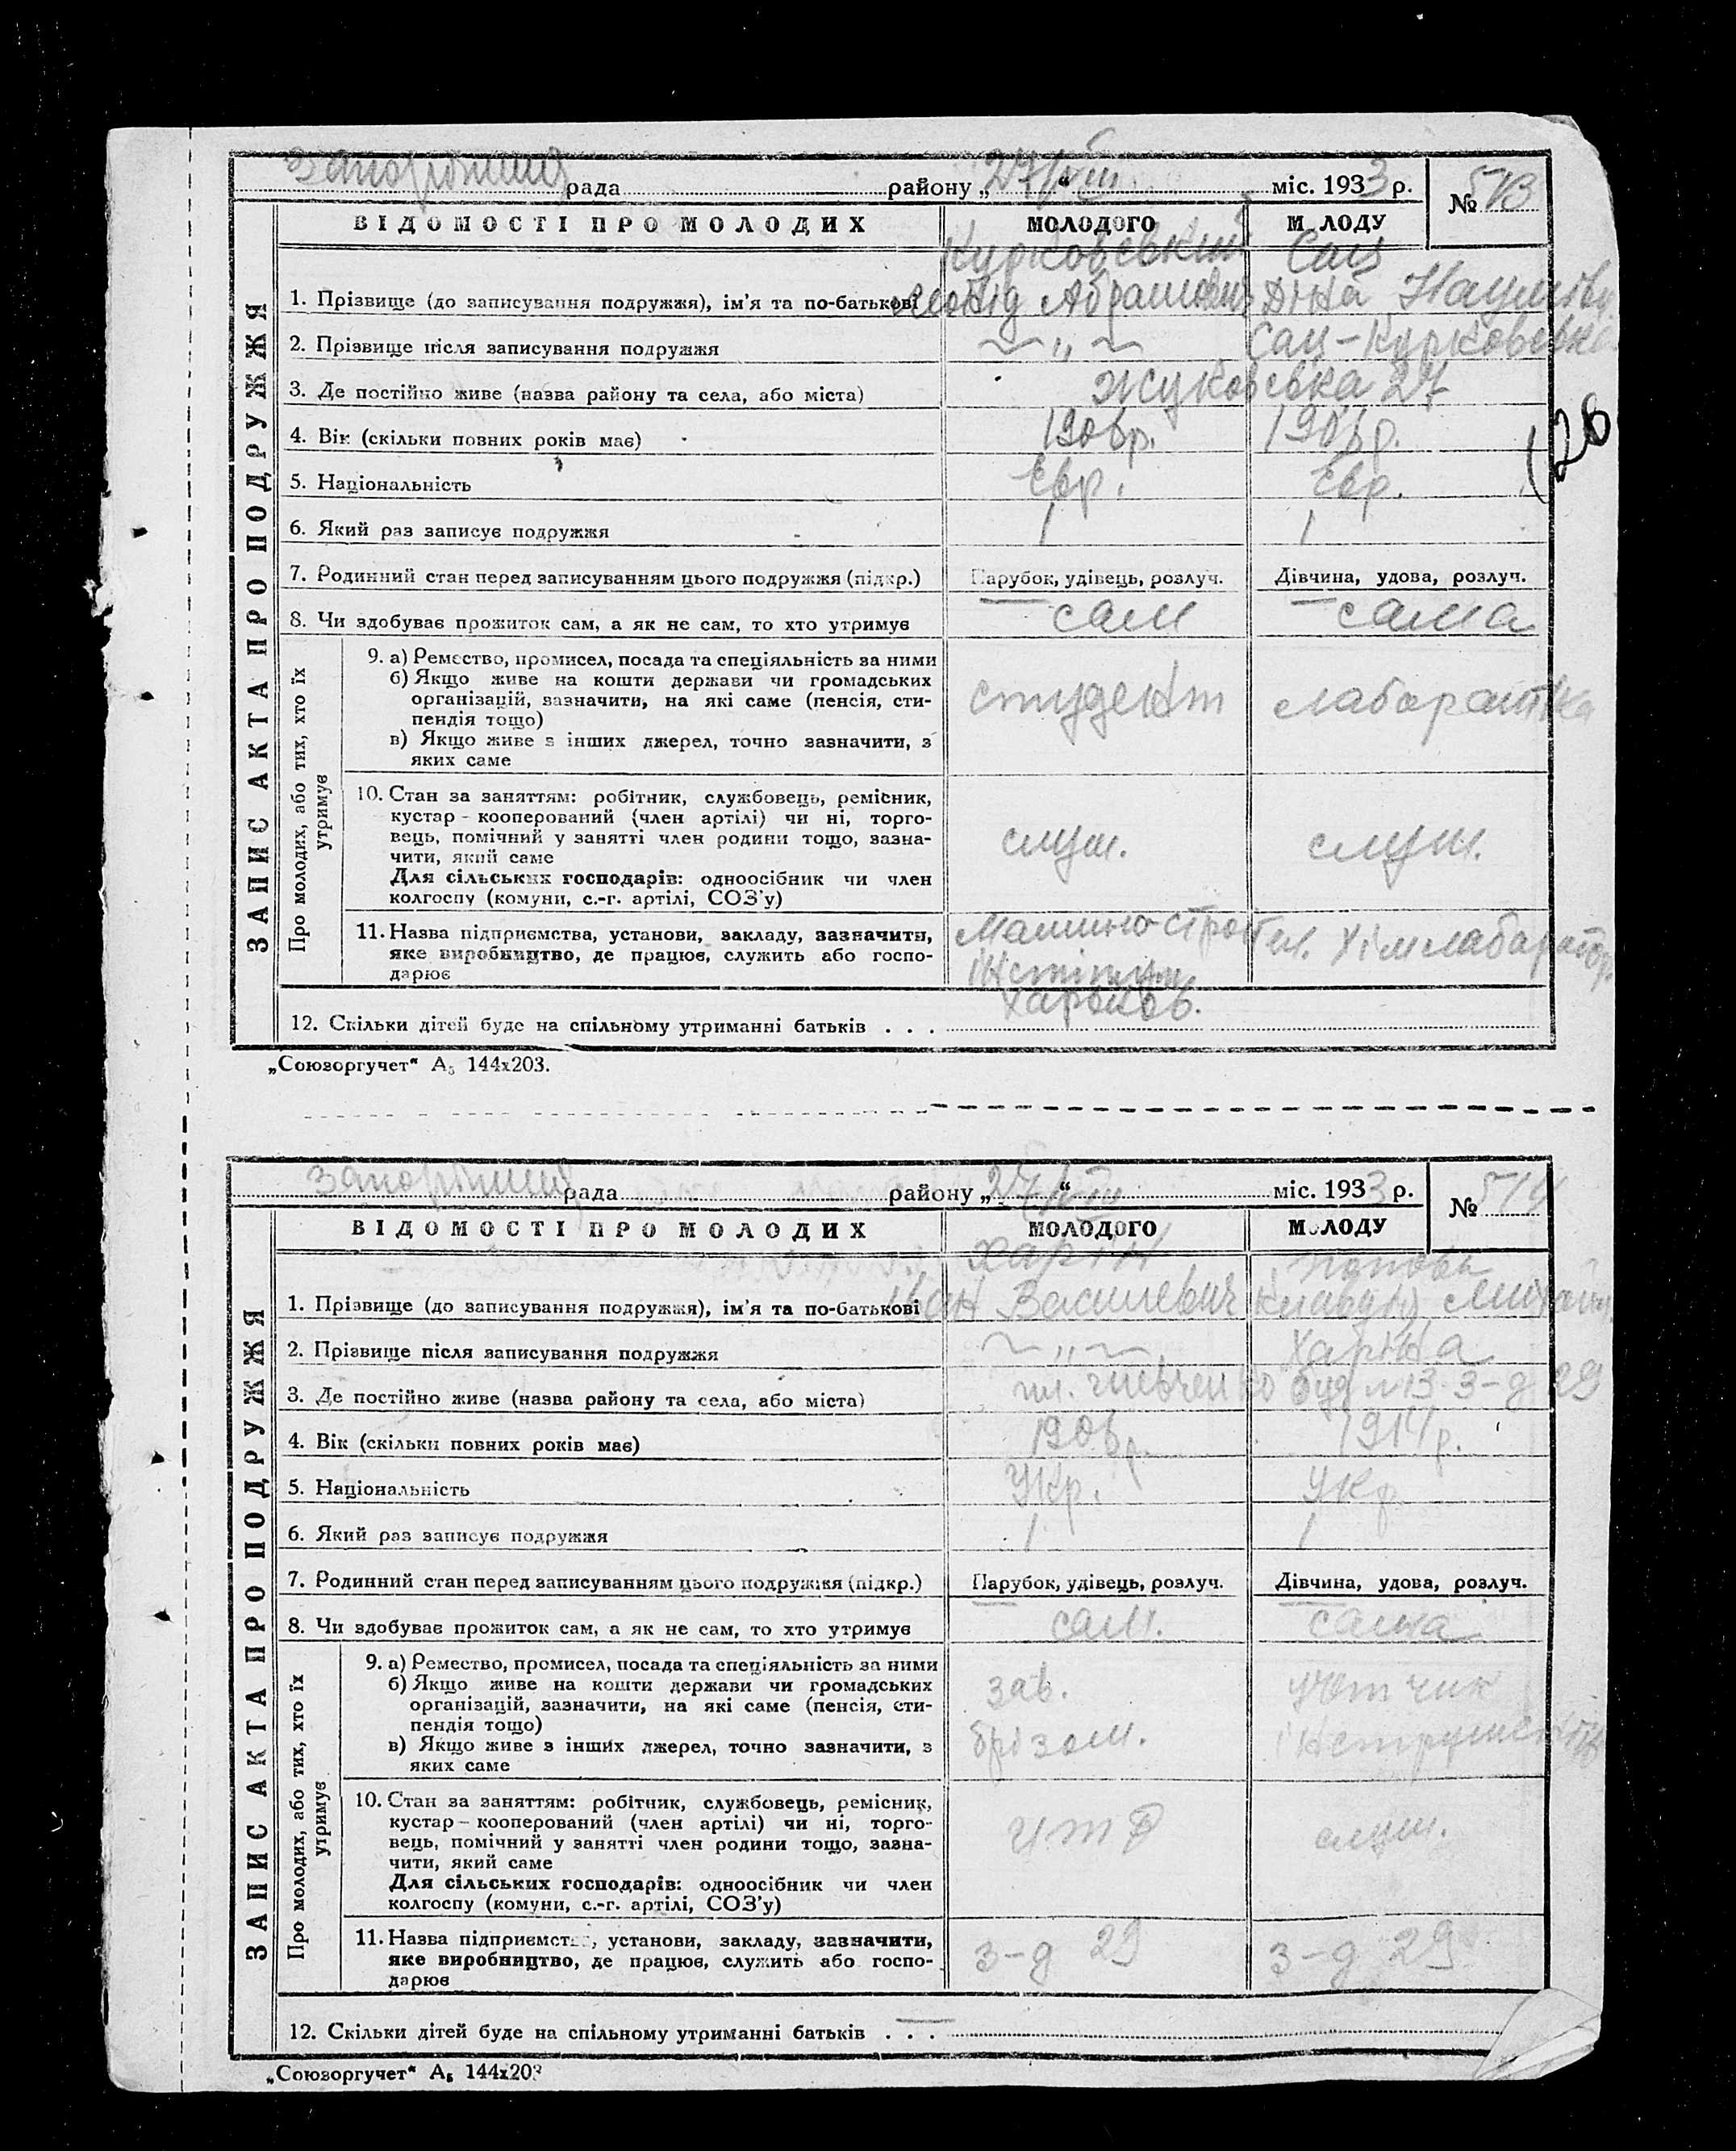 рада району „27/VIII“ міс. 1933 р. № 513
ВІДОМОСТІ ПРО МОЛОДИХ МОЛОДОГО МОЛОДУ
Курковський Сац
1. Прізвище (до записування подружжя), ім'я та по-батькові Леонід Абрамович Діна
2. Прізвище після записування подружжя —„— Сац-Курковська
3. Де постійно живе (назва району та села, або міста) Жуковська 27
4. Вік (скільки повних років має) 1906р. 1906р.
5. Національність Євр. Євр.
6. Який раз записує подружжя 1 1
7. Родинний стан перед записуванням цього подружжя (підкр.) Парубок, удівець, розлуч. Дівчина, удова, розлуч.
8. Чи здобуває прожиток сам, а як не сам, то хто утримує сам сама
ЗАПИС АКТА ПРО ПОДРУЖЖЯ
Про молодих, або тих, хто їх утримує
9. а) Ремество, промисел, посада та спеціяльність за ними
б) Якщо живе на кошти держави чи громадських
організацій, зазначити, на які саме (пенсія, сти- студент лаборантка
пендія тощо)
в) Якщо живе з інших джерел, точно зазначити, з
яких саме
10. Стан за заняттям: робітник, службовець, ремісник,
кустар - кооперований (член артілі) чи ні, торго-
вець, помічний у занятті член родини тощо, зазна- служ. служ.
чити, який саме
Для сільських господарів: одноосібник чи член
колгоспу (комуни, с.-г. артілі, СОЗ'у)
11. Назва підприємства, установи, закладу, зазначити, Машино-строї
яке виробництво, де працює, служить або госпо-
дарює інститут
Харьков.
12. Скільки дітей буде на спільному утриманні батьків . . .
„Союзоргучет“ А₅ 144х203.
126
рада району „27/VIII“ міс. 1933 р. № 514
ВІДОМОСТІ ПРО МОЛОДИХ МОЛОДОГО МОЛОДУ
Харін
1. Прізвище (до записування подружжя), ім'я та по-батькові Іван Василевич
2. Прізвище після записування подружжя —„— Харіна
3. Де постійно живе (назва району та села, або міста) пл. Шевченко буд № 13 з-д 29
4. Вік (скільки повних років має) 1906р. 1914р.
5. Національність Укр. Укр.
6. Який раз записує подружжя 1 1
7. Родинний стан перед записуванням цього подружжя (підкр.) Парубок, удівець, розлуч. Дівчина, удова, розлуч.
8. Чи здобуває прожиток сам, а як не сам, то хто утримує сам. сама
ЗАПИС АКТА ПРО ПОДРУЖЖЯ
Про молодих, або тих, хто їх утримує
9. а) Ремество, промисел, посада та спеціяльність за ними
б) Якщо живе на кошти держави чи громадських зав.
організацій, зазначити, на які саме (пенсія, сти-
пендія тощо)
в) Якщо живе з інших джерел, точно зазначити, з брізом.
яких саме
10. Стан за заняттям: робітник, службовець, ремісник,
кустар - кооперований (член артілі) чи ні, торго-
вець, помічний у занятті член родини тощо, зазна- служ.
чити, який саме
Для сільських господарів: одноосібник чи член
колгоспу (комуни, с.-г. артілі, СОЗ'у)
11. Назва підприємства, установи, закладу, зазначити,
яке виробництво, де працює, служить або госпо- з-д 29 з-д 29
дарює
12. Скільки дітей буде на спільному утриманні батьків . . .
„Союзоргучет“ А₅ 144х203